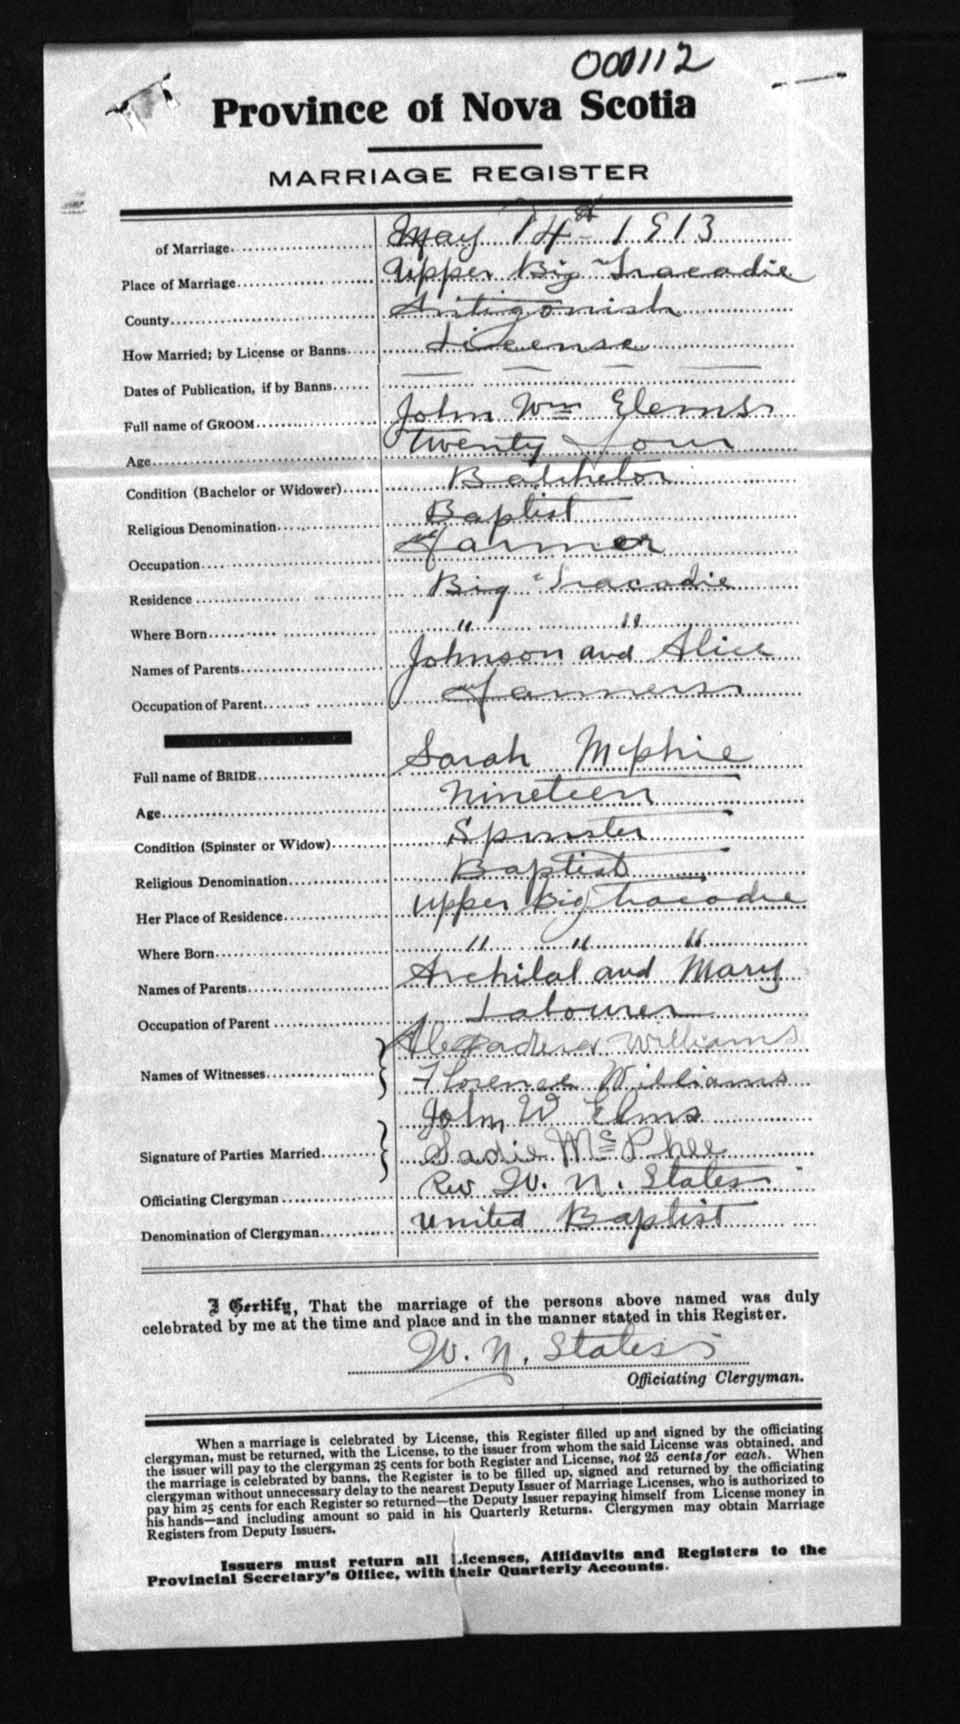 000112
Province of Nova Scotia
MARRIAGE REGISTER
of Marriage May 14th 1913
Place of Marriage Upper Big Tracadie
County Antigonish
How Married; by License or Banns License
Dates of Publication, if by Banns
Full name of GROOM John Wm Elems
Age Twenty four
Condition (Bachelor or Widower) Batchelor
Religious Denomination Baptist
Occupation Farmer
Residence Big Tracadie
Where Born " "
Names of Parents Johnson and Alice
Occupation of Parent Farmers
Full name of BRIDE Sarah Mcphie
Age Nineteen
Condition (Spinster or Widow) Spinster
Religious Denomination Baptist
Her Place of Residence Upper Big Tracadie
Where Born " " "
Names of Parents Archilal and Mary
Occupation of Parent Labourer
Williams
Names of Witnesses Florence Williams
John W Elms
Signature of Parties Married Sadie McPhee
Officiating Clergyman Rev W. N. States
Denomination of Clergyman United Baptist
I Certify, That the marriage of the persons above named was duly
celebrated by me at the time and place and in the manner stated in this Register.
W. N. States
Officiating Clergyman.
When a marriage is celebrated by License, this Register filled up and signed by the officiating
clergyman, must be returned, with the License, to the issuer from whom the said License was obtained, and
the issuer will pay to the clergyman 25 cents for both Register and License, not 25 cents for each. When
the marriage is celebrated by banns, the Register is to be filled up, signed and returned by the officiating
clergyman without unnecessary delay to the nearest Deputy Issuer of Marriage Licenses, who is authorized to
pay him 25 cents for each Register so returned—the Deputy Issuer repaying himself from License money in
his hands—and including amount so paid in his Quarterly Returns. Clergymen may obtain Marriage
Registers from Deputy Issuers.
Issuers must return all Licenses, Affidavits and Registers to the
Provincial Secretary's Office, with their Quarterly Accounts.